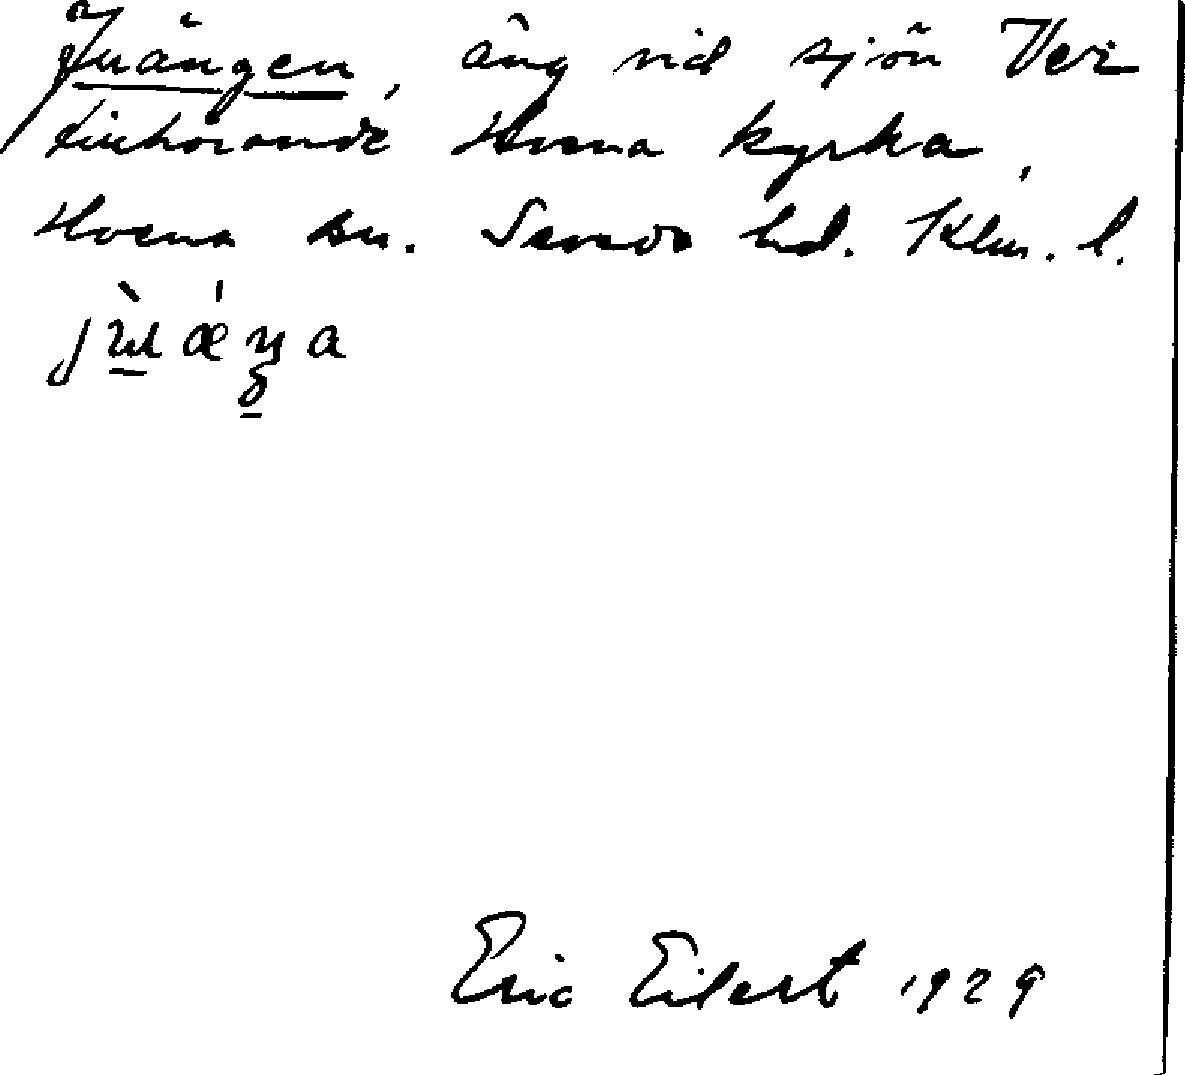 Juängen, äng vid sjön Ver
tillhörande Hvena kyrka,
Hvena sn. Sevede hd. Klm. l.
Eric Eilert 1929